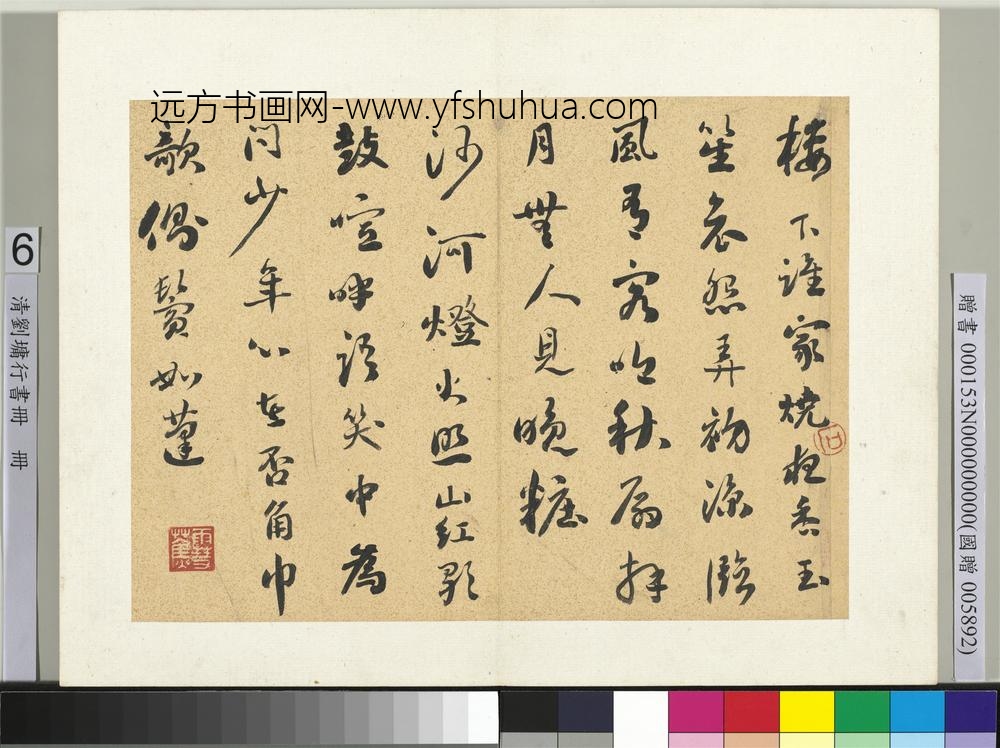 远方书画网-www.yfshuhua.com
樓下誰家燒夜香玉
笙哀怨弄初涼臨
風有客吟秋扇拜
月無人見晚糚
沙河燈火照山紅歌
鼓喧呼語笑中為
問少年心在否角巾
欹側鬢如蓬
贈書 000153N000000000(國贈 005892)
6
清劉墉行書冊 冊